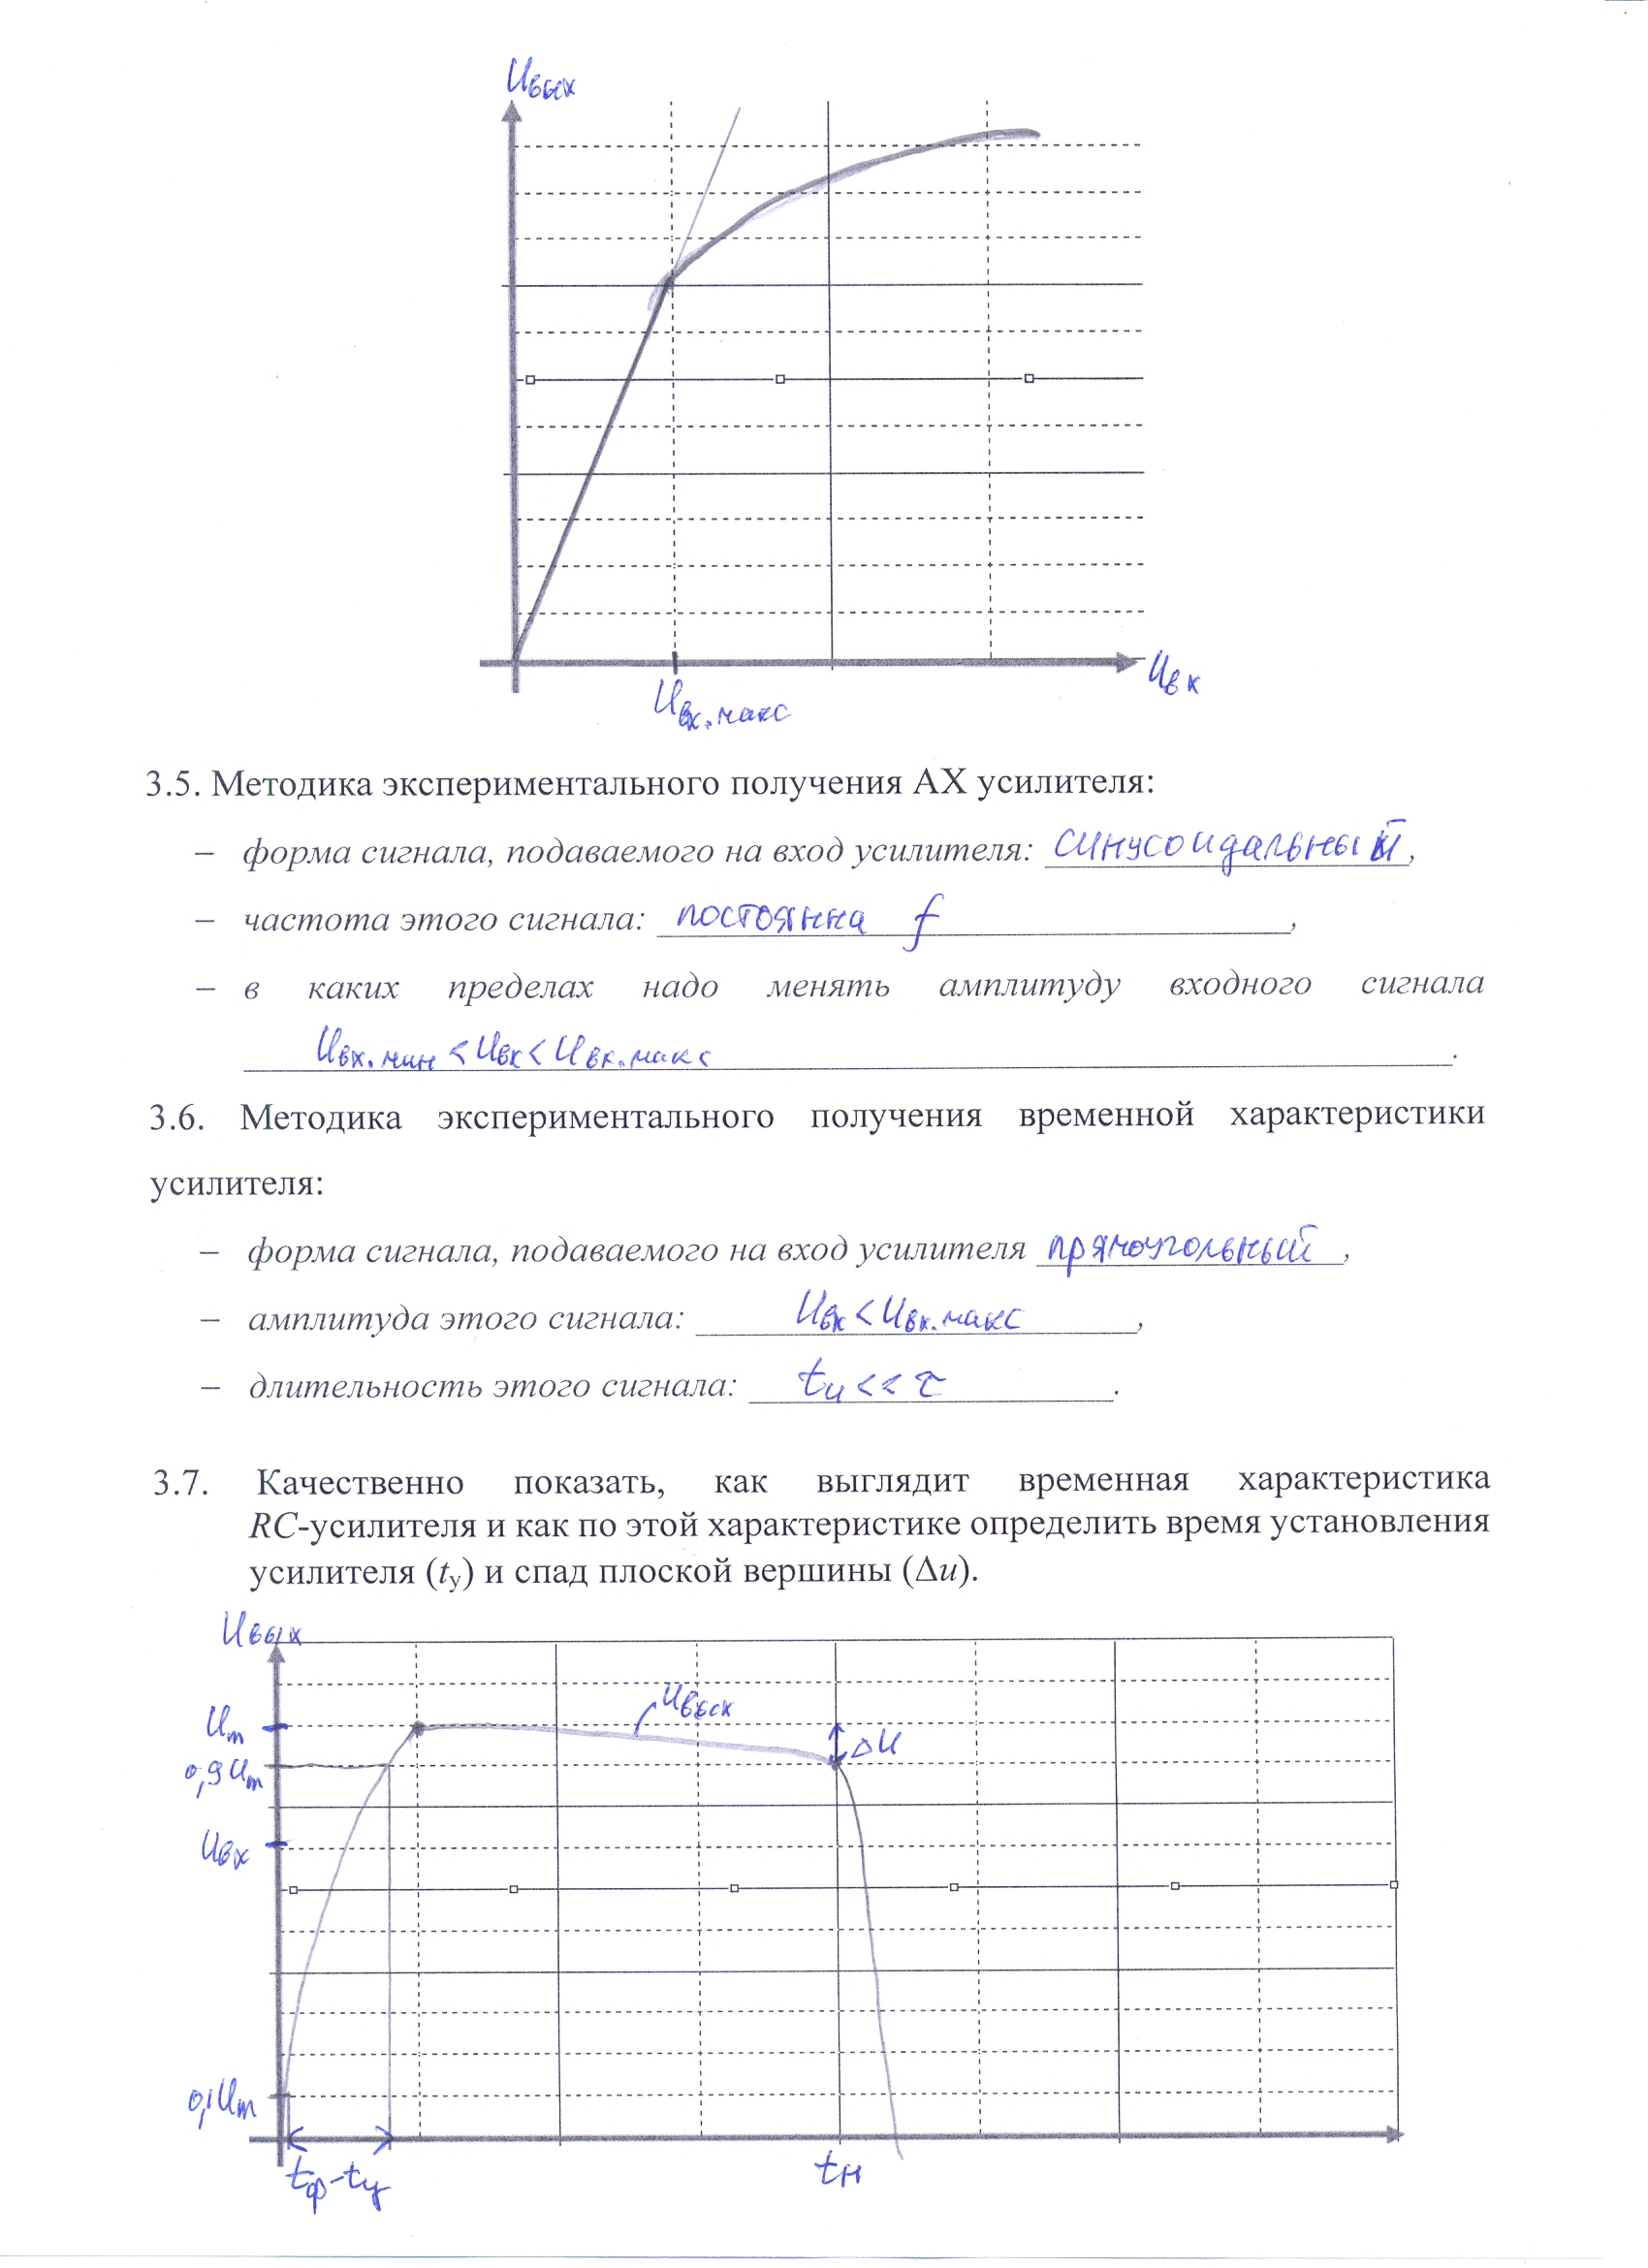 Uвых
Uвх
Uвх.макс
3.5. Методика экспериментального получения АХ усилителя:
– форма сигнала, подаваемого на вход усилителя: синусоидальный,
– частота этого сигнала: постоянна f,
– в каких пределах надо менять амплитуду входного сигнала
Uвх.мин < Uвх < Uвх.макс.
3.6. Методика экспериментального получения временной характеристики
усилителя:
– форма сигнала, подаваемого на вход усилителя прямоугольный,
– амплитуда этого сигнала: Uвх < Uвх.макс,
– длительность этого сигнала: tи << τ.
3.7. Качественно показать, как выглядит временная характеристика
RC-усилителя и как по этой характеристике определить время установления
усилителя (tу) и спад плоской вершины (Δu).
Uвых
Uвых
Um
ΔU
0,9Um
Uвх
0,1Um
tф-tу
tн